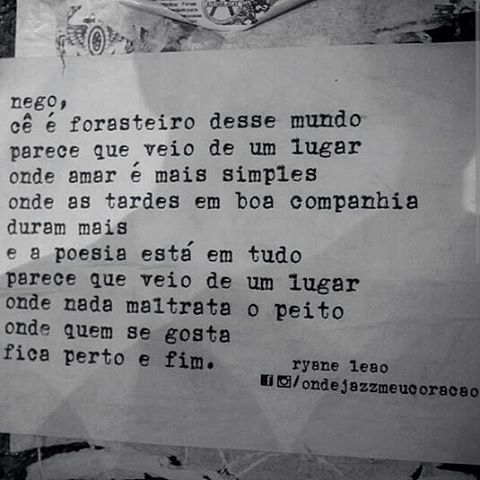 nego,
cê é forasteiro desse mundo
parece que veio de um lugar
onde amar é mais simples
onde as tardes em boa companhia
duram mais
e a poesia está em tudo
parece que veio de um lugar
onde nada maltrata o peito
onde quem se gosta
fica perto e fim.
ryane leao
/ondejazzmeucoracao